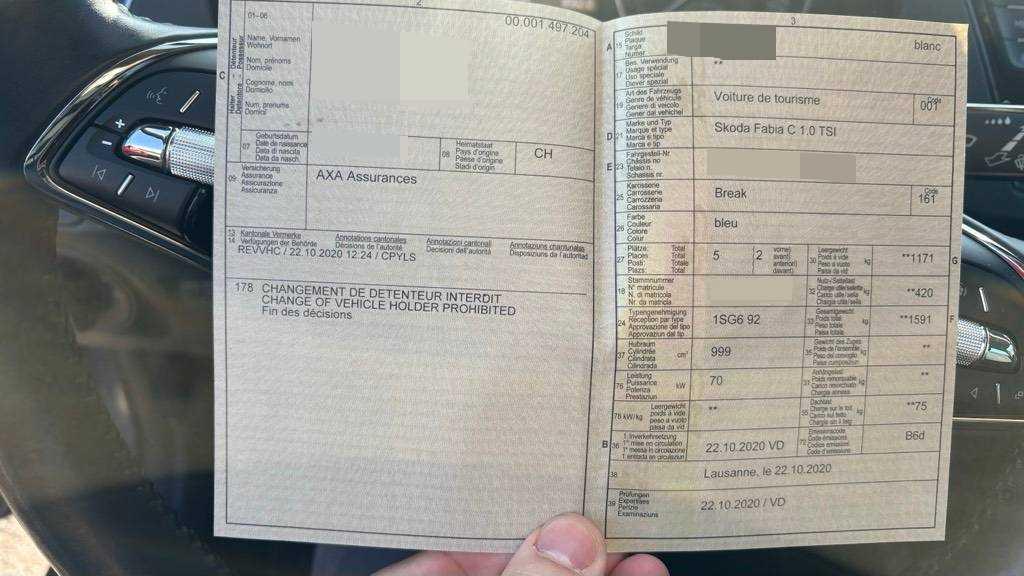 2
01-06
00.001.497.204
Halter Détenteur
Detentore Possessur
C
Name, Vornamen
Wohnort
Nom, prénoms
Domicile
Cognome, nomi
Domicilio
Num, prenums
Domicil
07
Geburtsdatum
Date de naissance
Data di nascita
Data da nasch.
08
Heimatstaat
Pays d'origine
Paese d'origine
Stadi d'origin
CH
09
Versicherung
Assurance
Assicurazione
Assicuranza
AXA Assurances
13 Kantonale Vermerke
14 Verfügungen der Behörde
Annotations cantonales
Décisions de l'autorité
Annotazioni cantonali
Decisioni dell'autorità
Annotaziuns chantunalas
Disposiziuns da l'autoritad
REVVHC / 22.10.2020 12:24 / CPYLS
178 CHANGEMENT DE DETENTEUR INTERDIT
CHANGE OF VEHICLE HOLDER PROHIBITED
Fin des décisions
3
A 15
Schild
Plaque
Targa
Numer
blanc
17
Bes. Verwendung
Usage spécial
Uso speciale
Diever spezial
**
19
Art des Fahrzeugs
Genre de véhicule
Genere di veicolo
Gener dal vehichel
Voiture de tourisme
Code
001
D 21
Marke und Typ
Marque et type
Marca e tipo
Marca e tip
Skoda Fabia C 1.0 TSI
E 23
Fahrgestell-Nr
Châssis no
Telaio n.
Schassis nr.
25
Karosserie
Carrosserie
Carrozzeria
Carossaria
Break
Code
161
26
Farbe
Couleur
Colore
Colur
bleu
27
Plätze: Total
Places: Total
Posti: Totale
Plazs: Total
5
2
vorne)
avant)
anteriori)
davant)
30
Leergewicht
Poids à vide
Peso a vuoto
Paisa da vid
kg
**1171
G
18
Stammnummer
N° matricule
N. di matricola
Nr. da matricla
32
Nutz-/Sattellast
Charge utile/sellette
Carico utile/sella
Chargia utila/sella
kg
**420
24
Typengenehmigung
Réception par type
Approvazione del tipo
Approvaziun dal tip
1SG6 92
33
Gesamtgewicht
Poids total
Peso totale
Paisa totala
kg
**1591
F
37
Hubraum
Cylindrée
Cilindrata
Cilindrada
cm³
999
35
Gewicht des Zuges
Poids de l'ensemble
Peso del convoglio
Paisa cumposiziun
kg
**
76
Leistung
Puissance
Potenza
Prestaziun
kW
70
31
Anhängelast
Poids remorquable
Carico rimorchiato
Chargia annexa
kg
**
78 kW/kg
Leergewicht
poids à vide
peso a vuoto
paisa da vid
**
55
Dachlast
Charge sur le toit
Carico sul tetto
Chargia sin il tetg
kg
**75
B 36
1. Inverkehrsetzung
1re mise en circulation
1a messa in circolazione
1. entrada en circulaziun
22.10.2020 VD
72
Emissionscode
Code émissions
Codice emissioni
Code d'emissiuns
B6d
38
Lausanne, le 22.10.2020
39
Prüfungen
Expertises
Perizie
Examinaziuns
22.10.2020 / VD